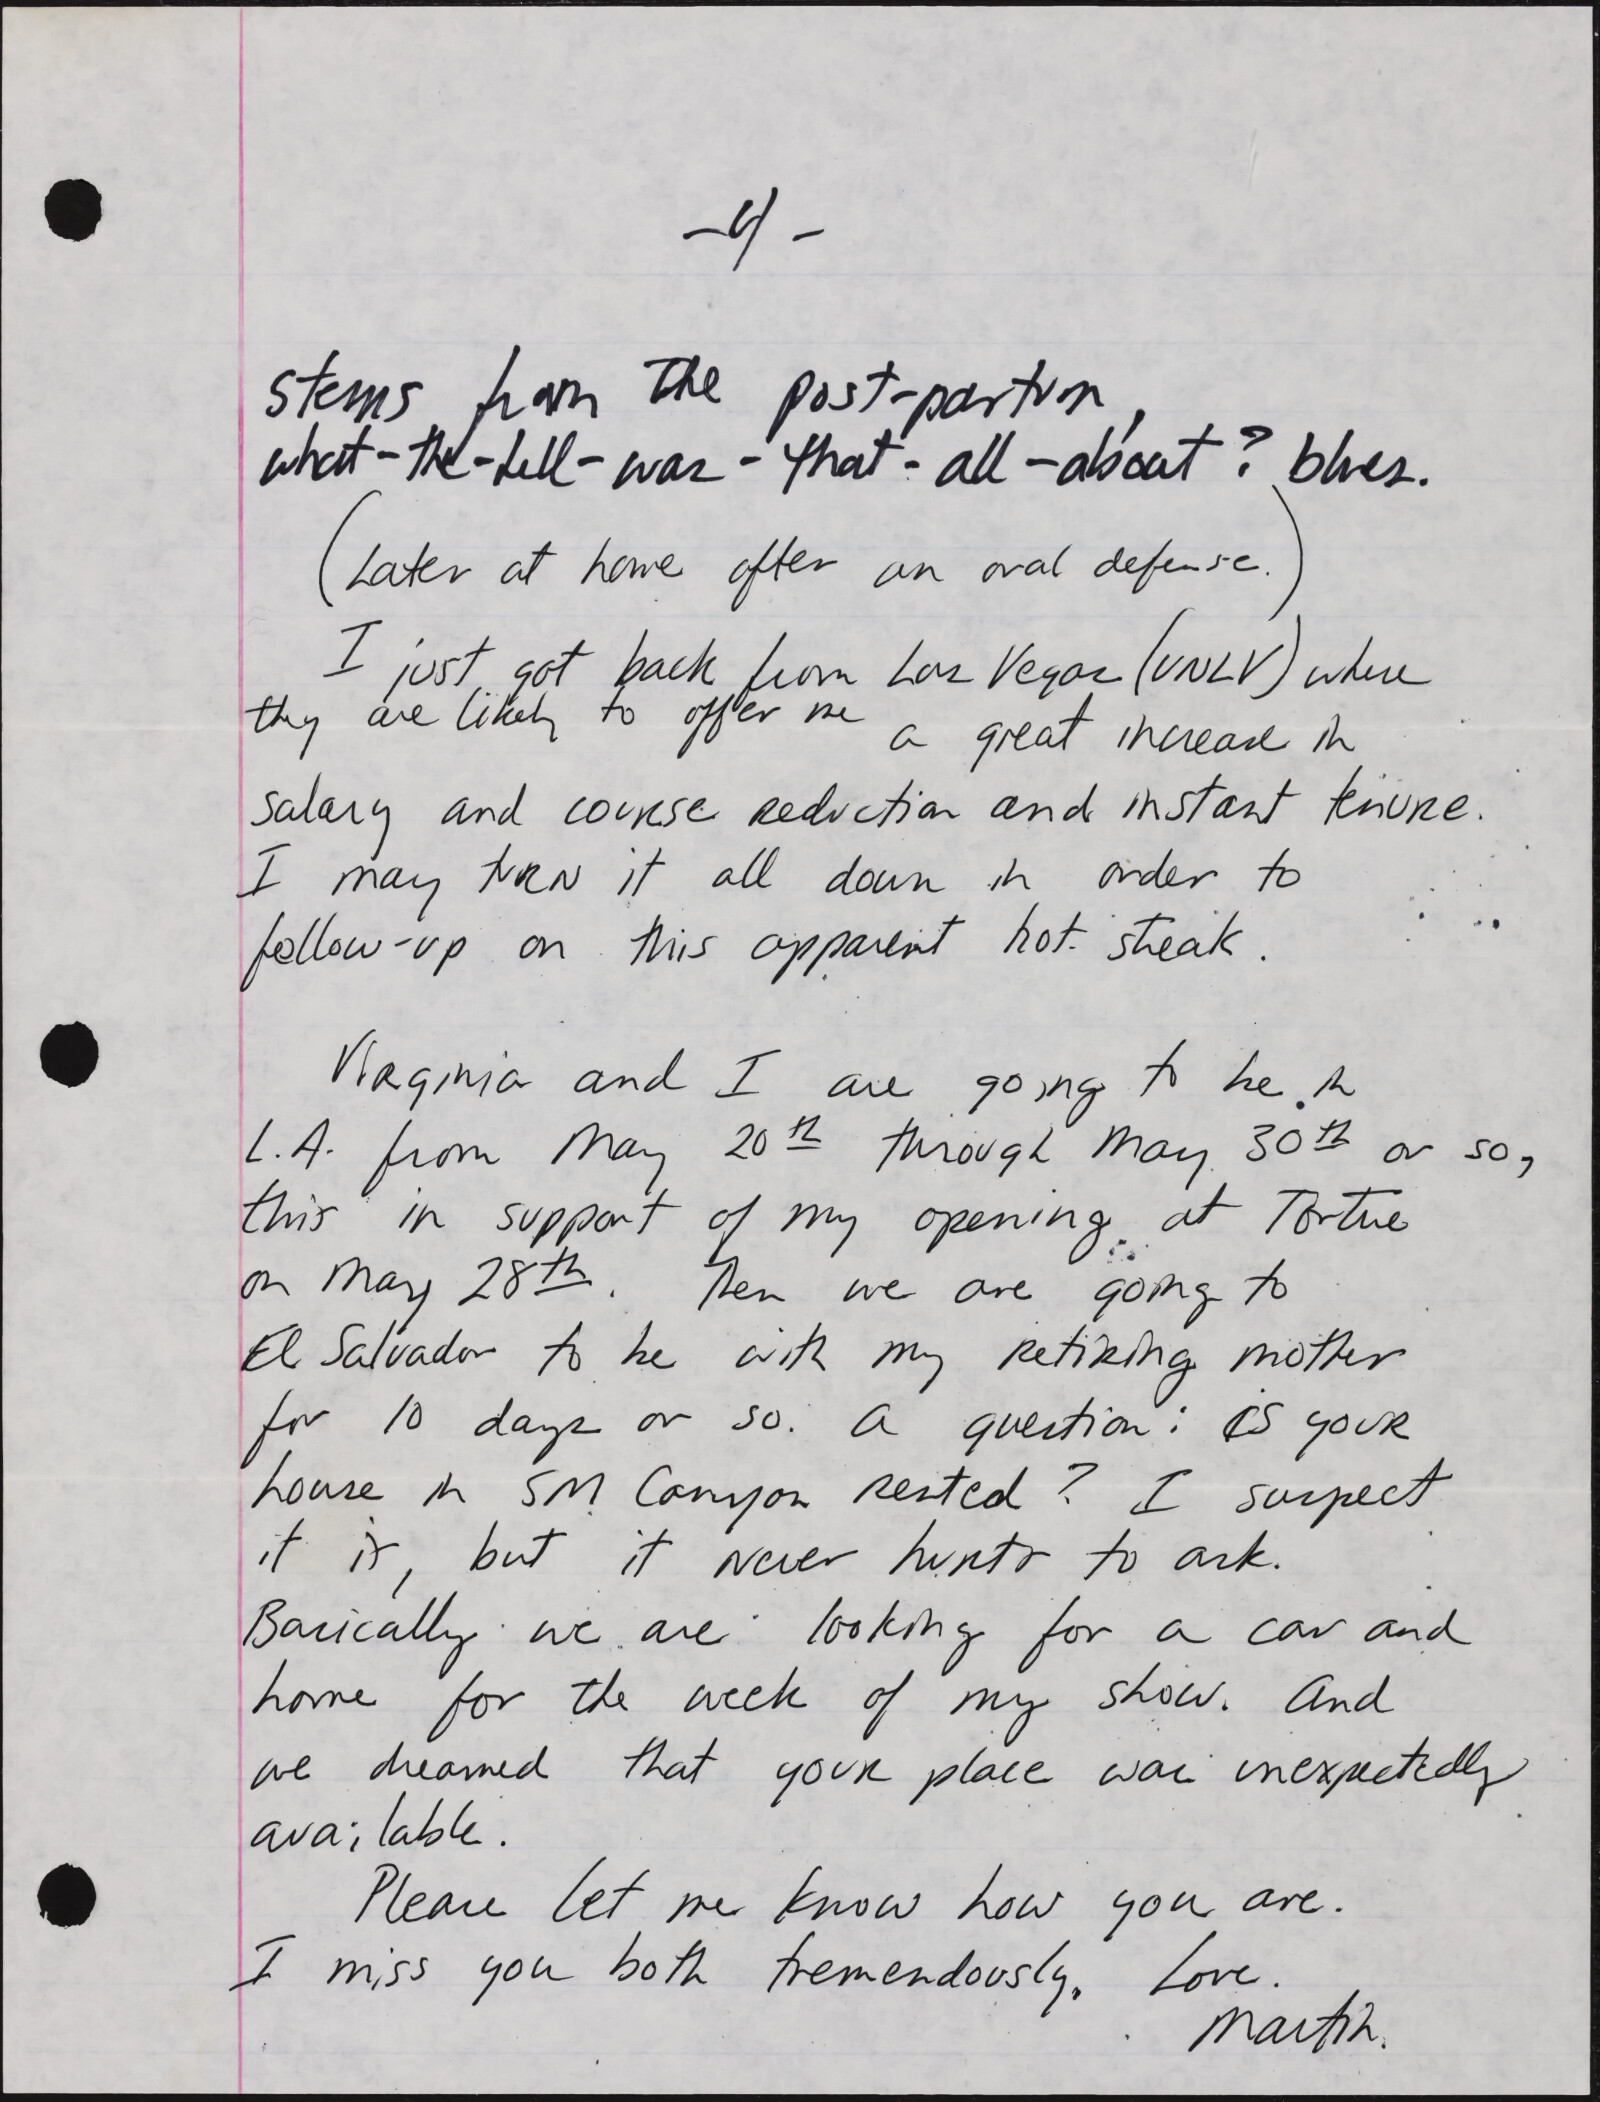 -4-
stems from the post-partum,
what-the-hell-was-that-all-about? blues.
(Later at home after an oral defense.)
I just got back from Las Vegas (UNLV) where
they are likely to offer me a great increase in
salary and course reduction and instant tenure.
I may turn it all down in order to
follow-up on this apparent hot streak.
Virginia and I are going to be in
L.A. from May 20th through May 30th or so,
this in support of my opening at Tortue
on May 28th. Then we are going to
El Salvador to be with my retiring mother
for 10 days or so. A question: is your
house in SM Canyon rented? I suspect
it is, but it never hurts to ask.
Basically we are looking for a car and
home for the week of my show. And
we dreamed that your place was unexpectedly
available.
Please let me know how you are.
I miss you both tremendously. Love.
Martin.